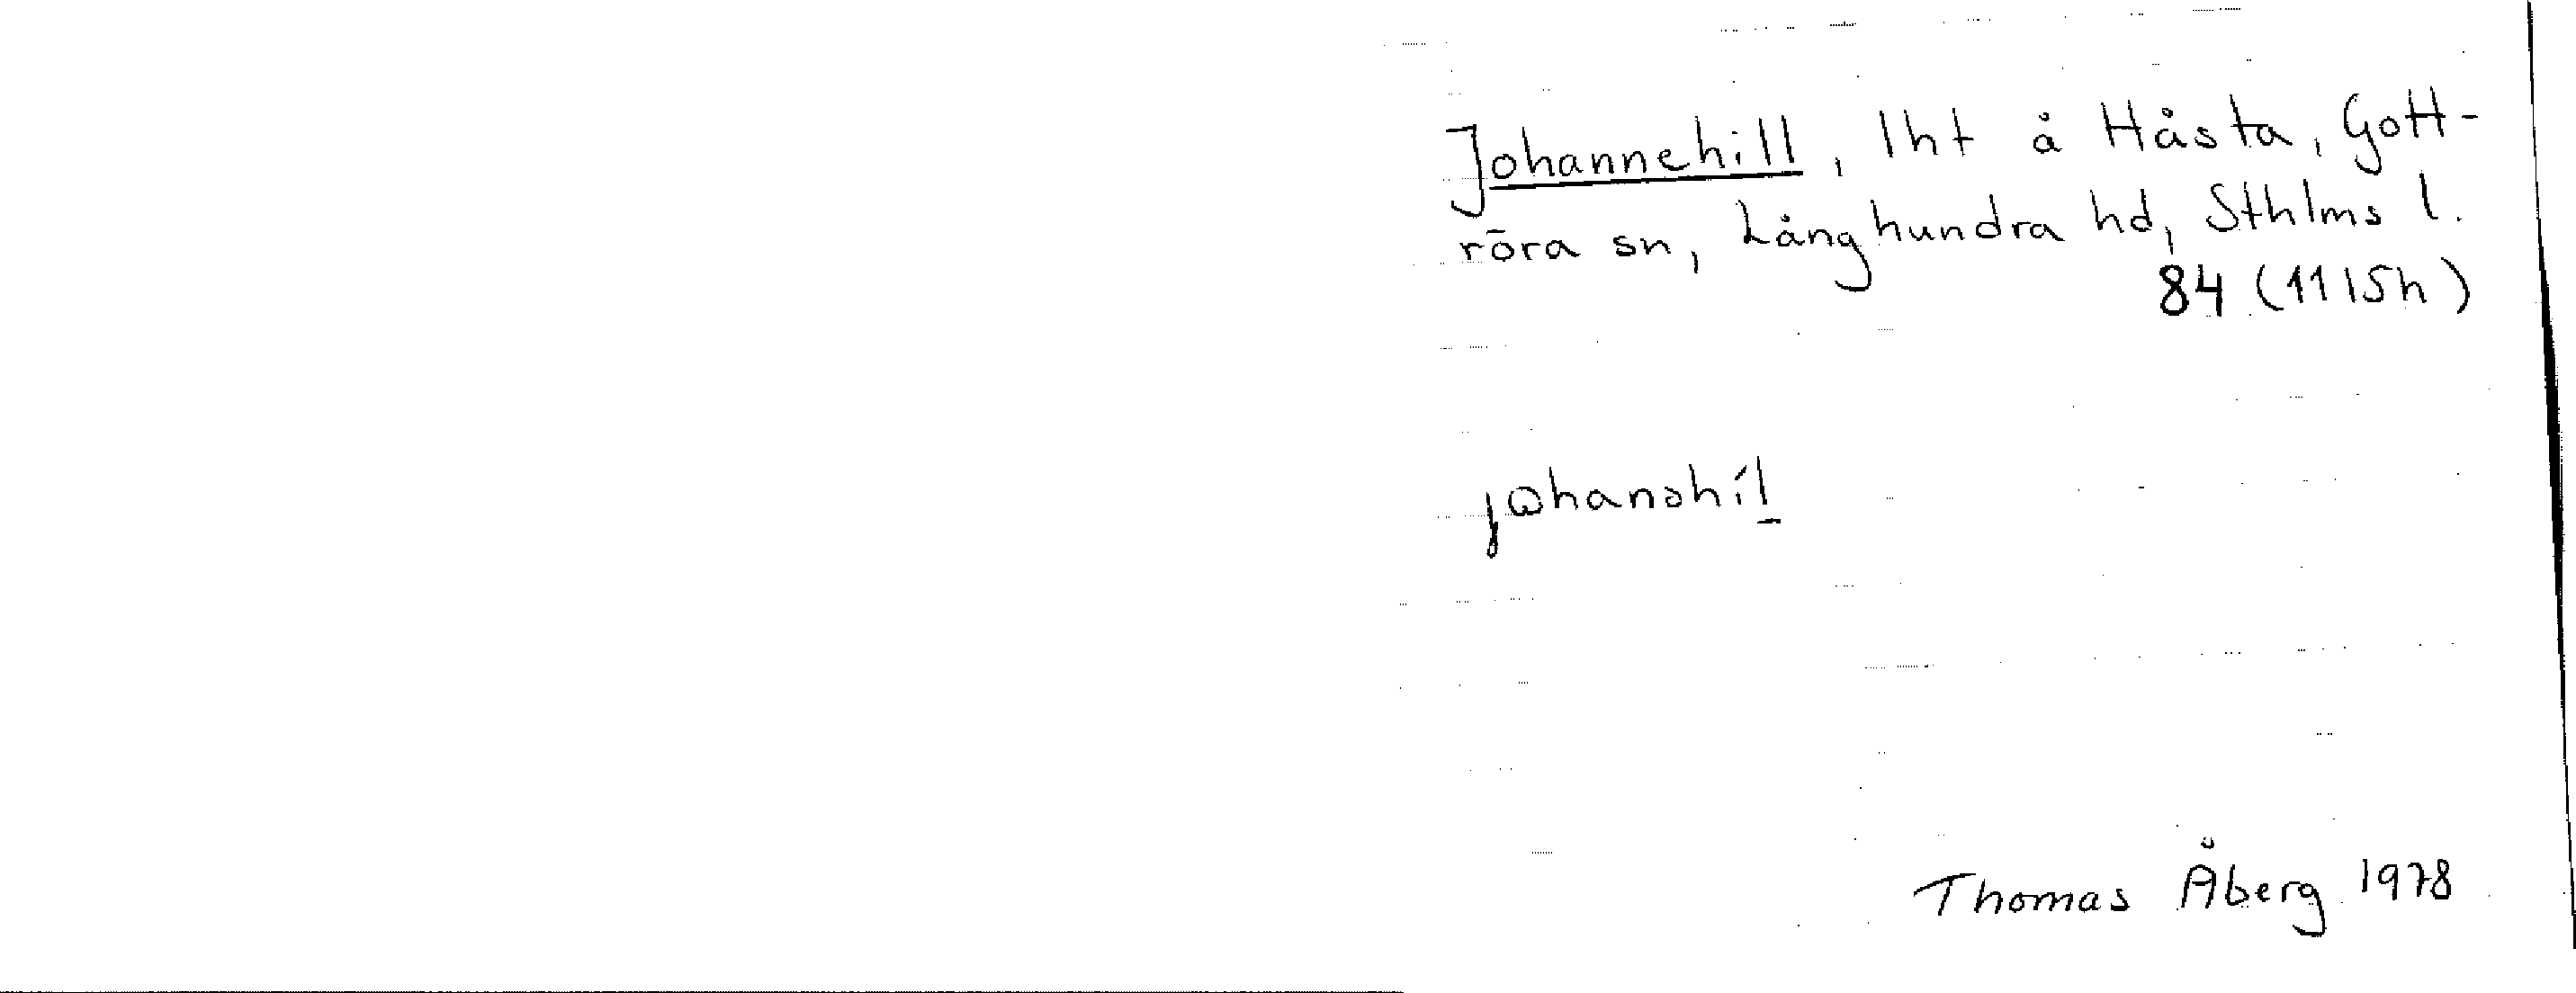 Johannehill, lht å Håsta, Gott-
röra sn, Långhundra hd, Sthlms l.
84 (11I5h)
jωhanəhíl
Thomas Åberg 1978